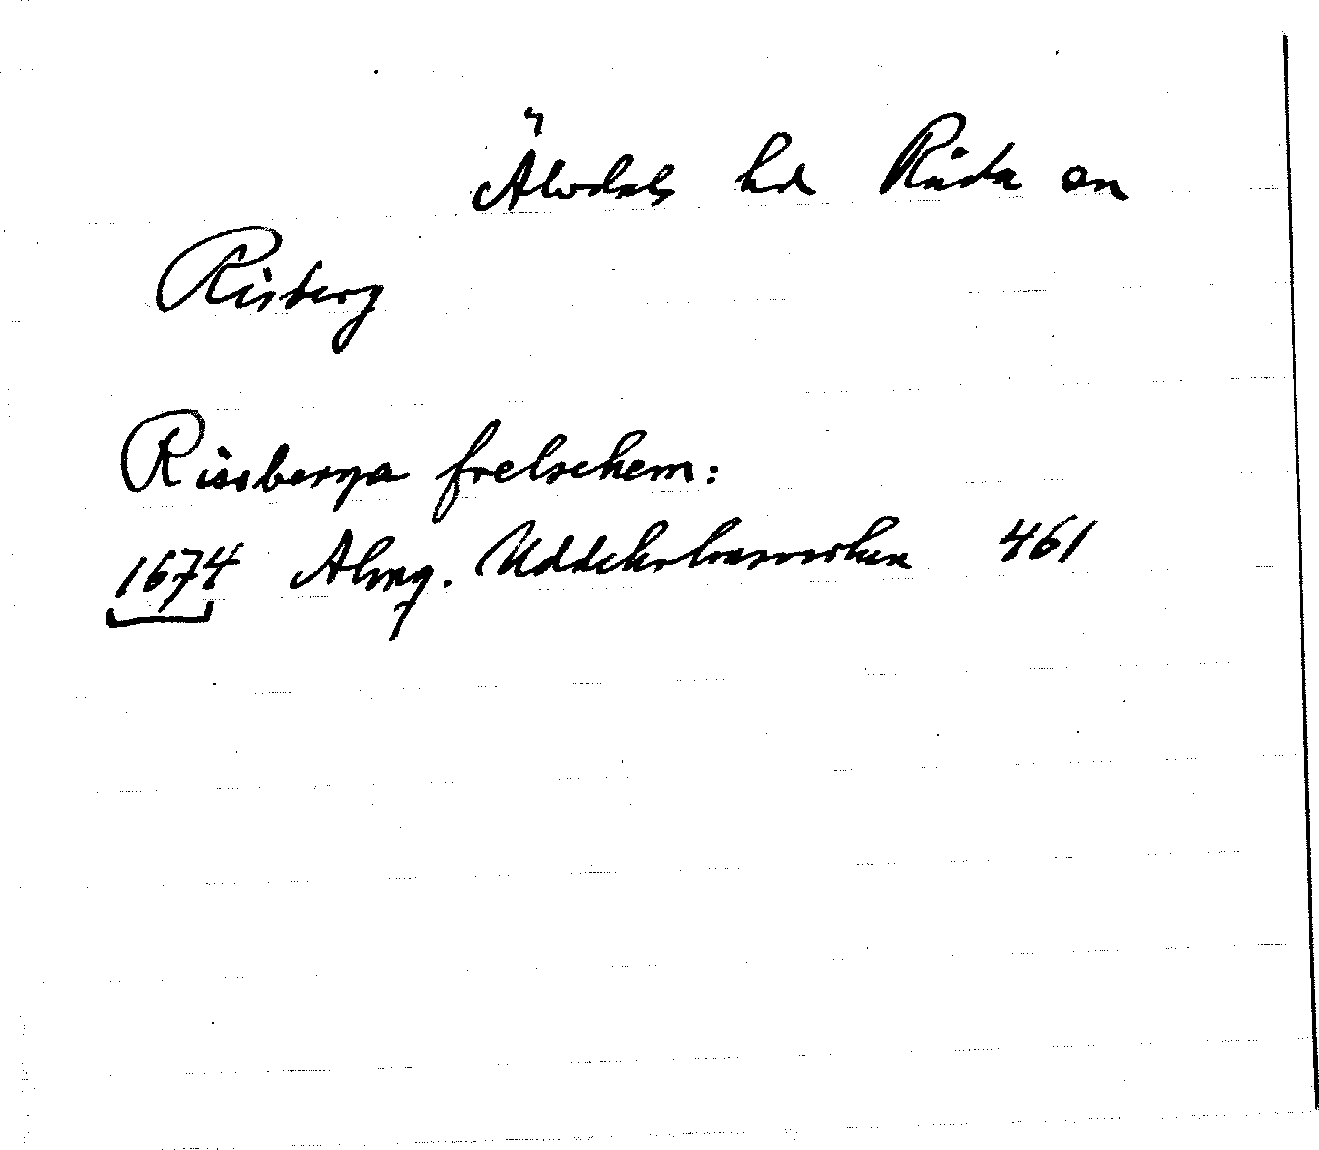 Älvdals hd Råda sn
Risberg
Rissberga frelsehem:
1674 Almq. Uddeholmsverken 461